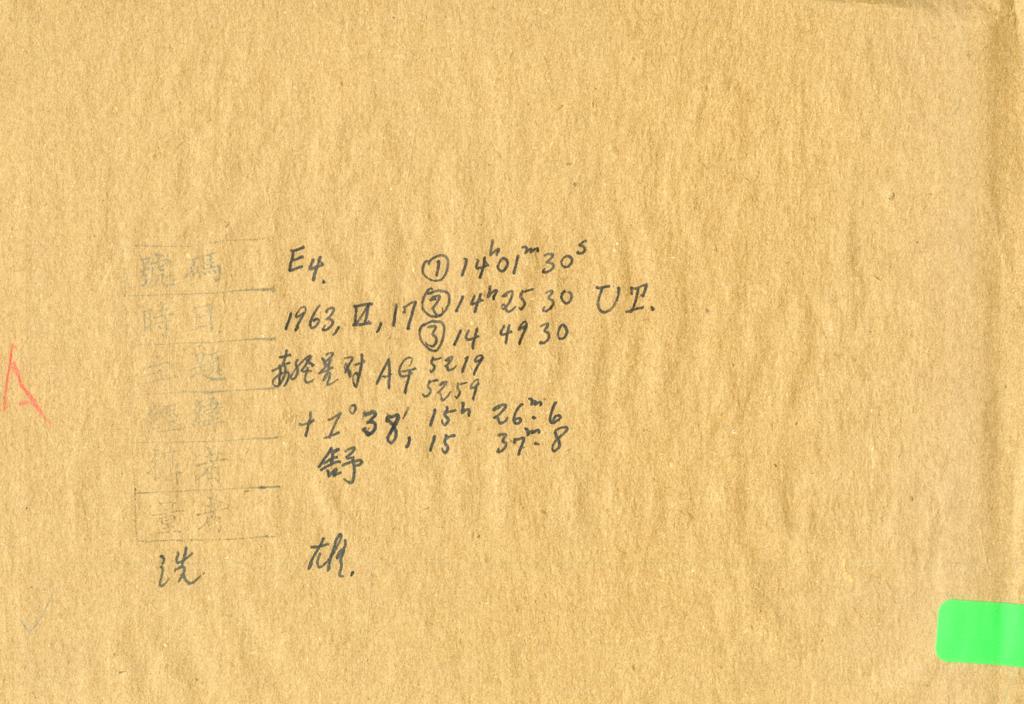 號碼 E4. ① 14ʰ01ᵐ30ˢ
時日 1963, VI, 17 ② 14ʰ 25 30 U T.
③ 14 49 30
題 赤经是对 AG 5219
5259
+1°38', 15ʰ 26ᵐ.6
15 37ᵐ.8
者 舒
洗 雄.
A